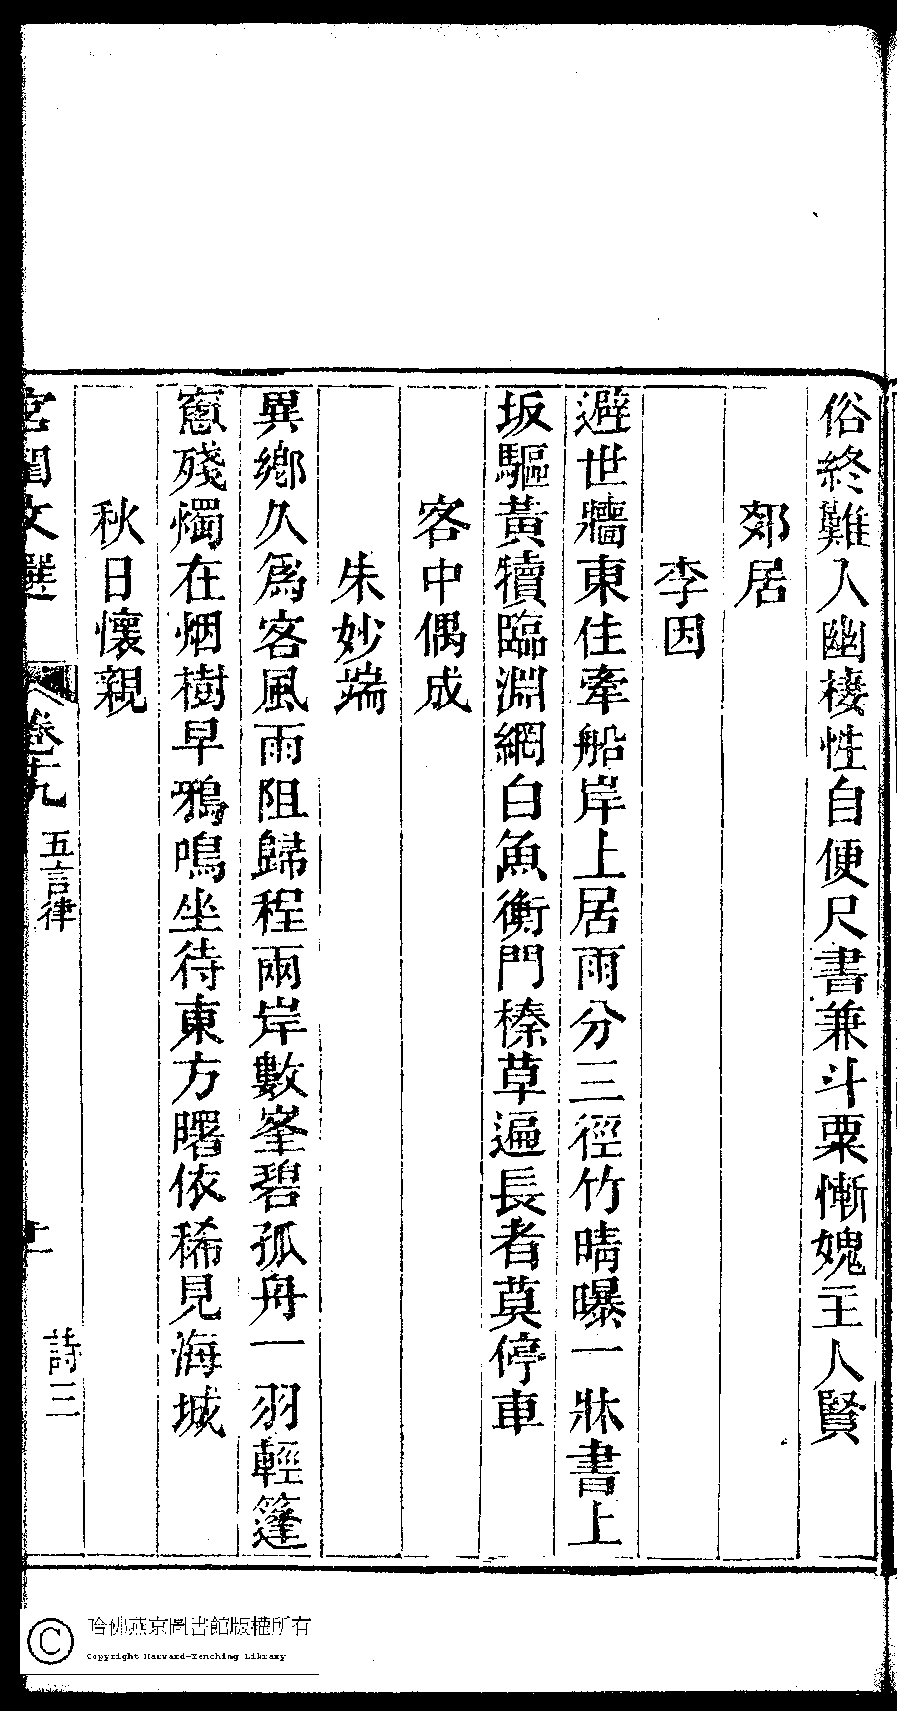 俗終難入幽棲性自便尺書兼斗粟慚媿主人賢
郊居
李因
避世牆東住牽船岸上居雨分三徑竹晴曝一牀書上
坂驅黃犢臨淵網白魚衡門榛草遍長者莫停車
客中偶成
朱妙端
異鄉久為客風雨阻歸程兩岸數峯碧孤舟一羽輕篷
窻殘燭在烟樹早鴉鳴坐待東方曙依稀見海城
秋日懷親
宮閨文選
卷十九
五言律
十
詩三
哈佛燕京圖書館版權所有
Copyright Harvard-Yenching Library